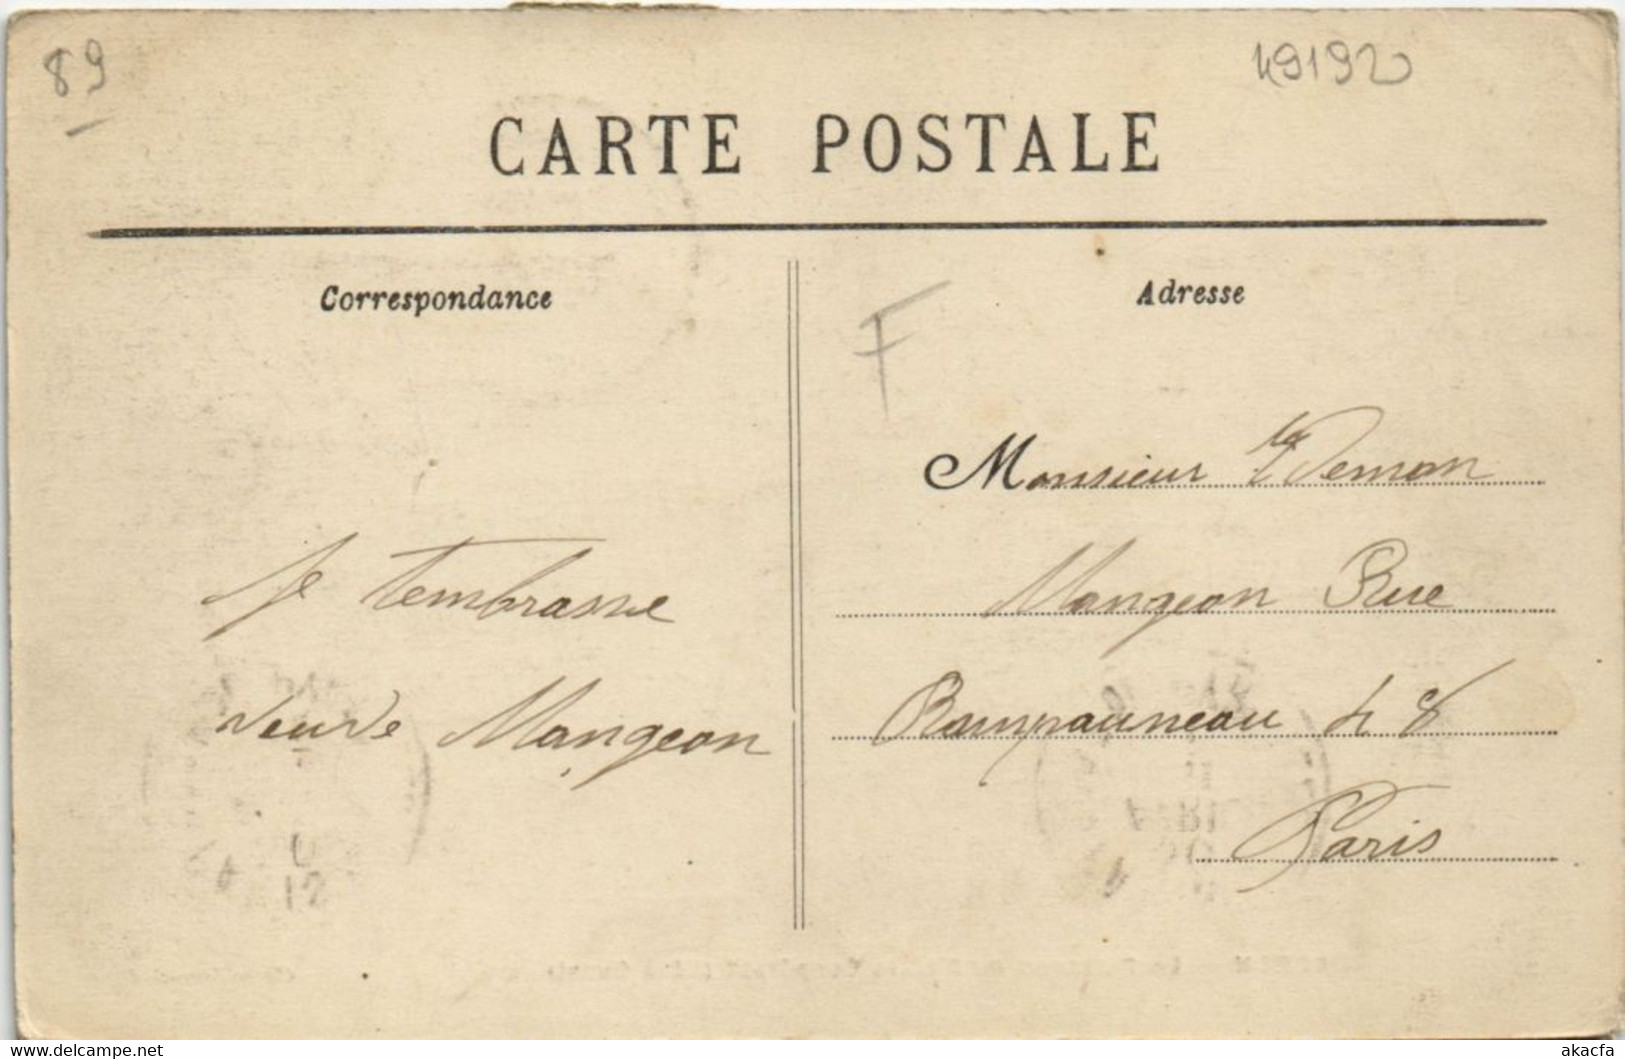 89
49192
CARTE POSTALE
Correspondance
Adresse
F
Monsieur
Mangeon Rue
Rampauneau 48
Paris
Je tembrasse
veuve Mangeon
www.delcampe.net
akacfa